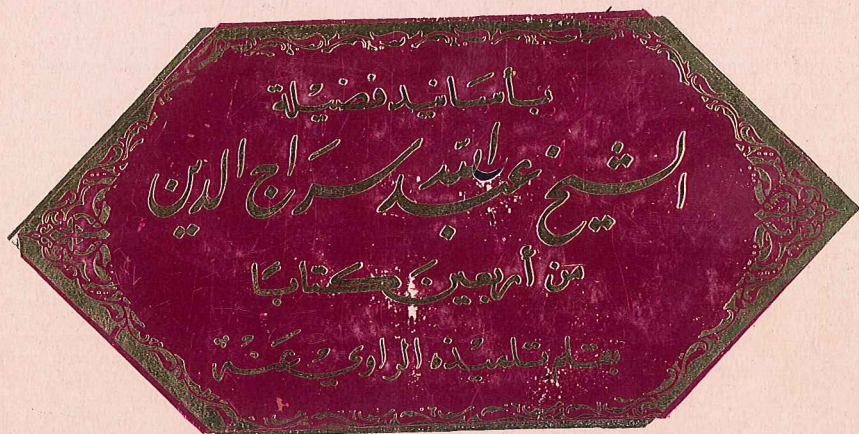 بأسانيد فضيلة
الشيخ عبد الله سراج الدين
من أربعين كتابًا
بقلم تلميذه الراوي عنه